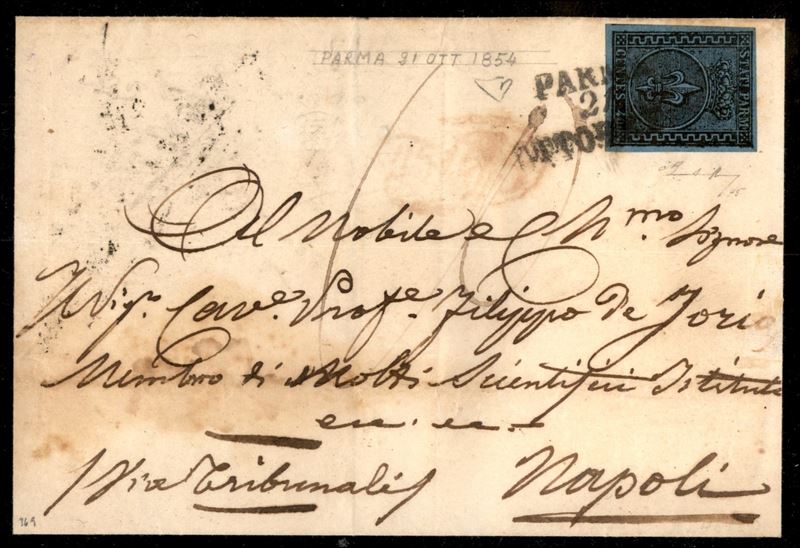 PARMA 21 OTT 1854
PAR
2
OTTO
STATI PARM
CENTES. 40
Al Nobile e N.mo Signore
Il Sigr. Cave. Profe. Filippo De Jorio
Membro di Molti Scientifici Istituti
ec. ec.
Via Tribunali
Napoli
769